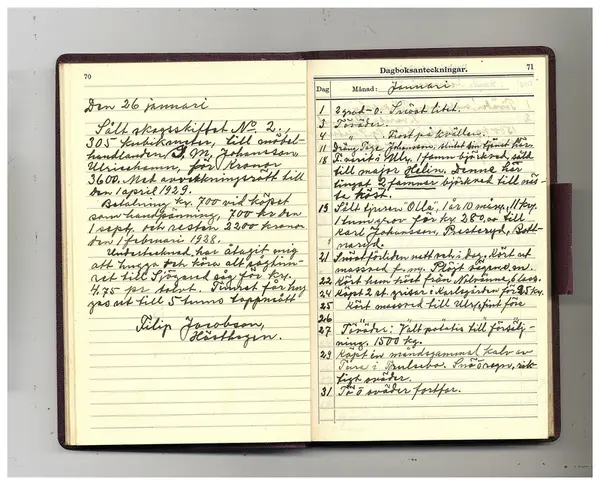 70
Den 26 januari
Sålt skogsskiftet No. 2,
305 kubikmeter, till möbel-
handlanden J. M. Johansson
Ulricehamn, för Kronor
3600. Med avverkningsrätt till
den 1 april 1929.
Betalning kr. 700 vid köpet
som handpänning, 700 kr den
1 sept. och resten 2200 kronor
den 1 februari 1928.
Undertecknad, har åtagit mig
att hugga och köra all sågtim-
ret till Sjögared såg för kr.
4,75 pr tornt. Timret får hug-
gas ut till 5 tums toppmått
Filip Jacobson,
Hösthagen.
Dagboksanteckningar.
71
Dag
Månad: Januari
1 2 grad. 0. Snöat litet.
3 Töväder.
4 " Frost på kvällen.
11 Dräng, Åge Johansson, slutat sin tjänst här.
18 T. varit i Ulle. 1 famn björkved, sålt
till major Helin. Denne har
tingat 2 famnar björkved till näs-
ta höst.
19 Sålt tjuren "Olla", 1 år 10 mån, 11 kv.
1 tum grov för kr 280, av till
Karl Johansson, Resteryd, Bott-
naryd.
21 Snöat förliden natt och i dag. Kört ut
massved f. m. Plöjt vägen e. m.
22 Kört hem höst från Nolränne, 6 lass.
24 Köpt 2 st grisar i Karlsgården för 25 kr.
25 Kört massved till Ulrshint före
26
27 Töväder. Valt potatis till försälj-
ning. 1500 kg.
29 Köpt in månadsgammal kalv av
Ture i Trulsebo. Snö o regn, rik-
tigt oväder.
31 Tö o oväder fortfar.